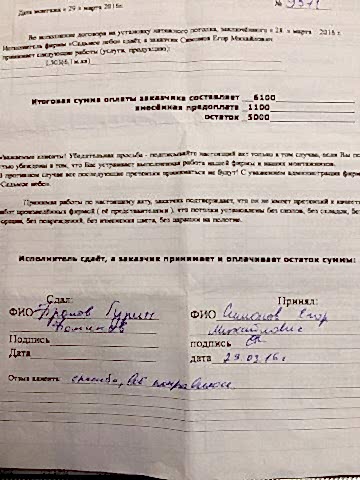 Дата монтажа « 29 » марта 2016г. № 9371
Во исполнение договора на установку натяжного потолка, заключённого « 28 » марта 2016 г.
Исполнитель фирма «Седьмое небо» сдаёт, а заказчик Симонов Егор Михайлович
принимает следующие работы (услуги, продукцию):
Итоговая сумма оплаты заказчика составляет 6100
внесённая предоплата 1100
остаток 5000
Уважаемые клиенты! Убедительная просьба - подписывайте настоящий акт только в том случае, если Вы
убеждены в том, что Вас устраивает выполненная работа нашей фирмы и наших монтажников.
В противном случае все последующие претензии приниматься не будут! С уважением администрация фирмы
«Седьмое небо».
Принимая работы по настоящему акту, заказчик подтверждает, что он не имеет претензий к качеству
работ произведённых фирмой ( её представителями ), что потолки установлены без сколов, без складок, без
без повреждений, без изменения цвета, без царапин на полотне.
Исполнитель сдаёт, а заказчик принимает и оплачивает остаток суммы:
Сдал: Принял:
ФИО ФИО Симонов Егор
Михайлович
Подпись подпись
Дата дата 29.03.16г.
Отзыв клиента: спасибо, всё понравилось